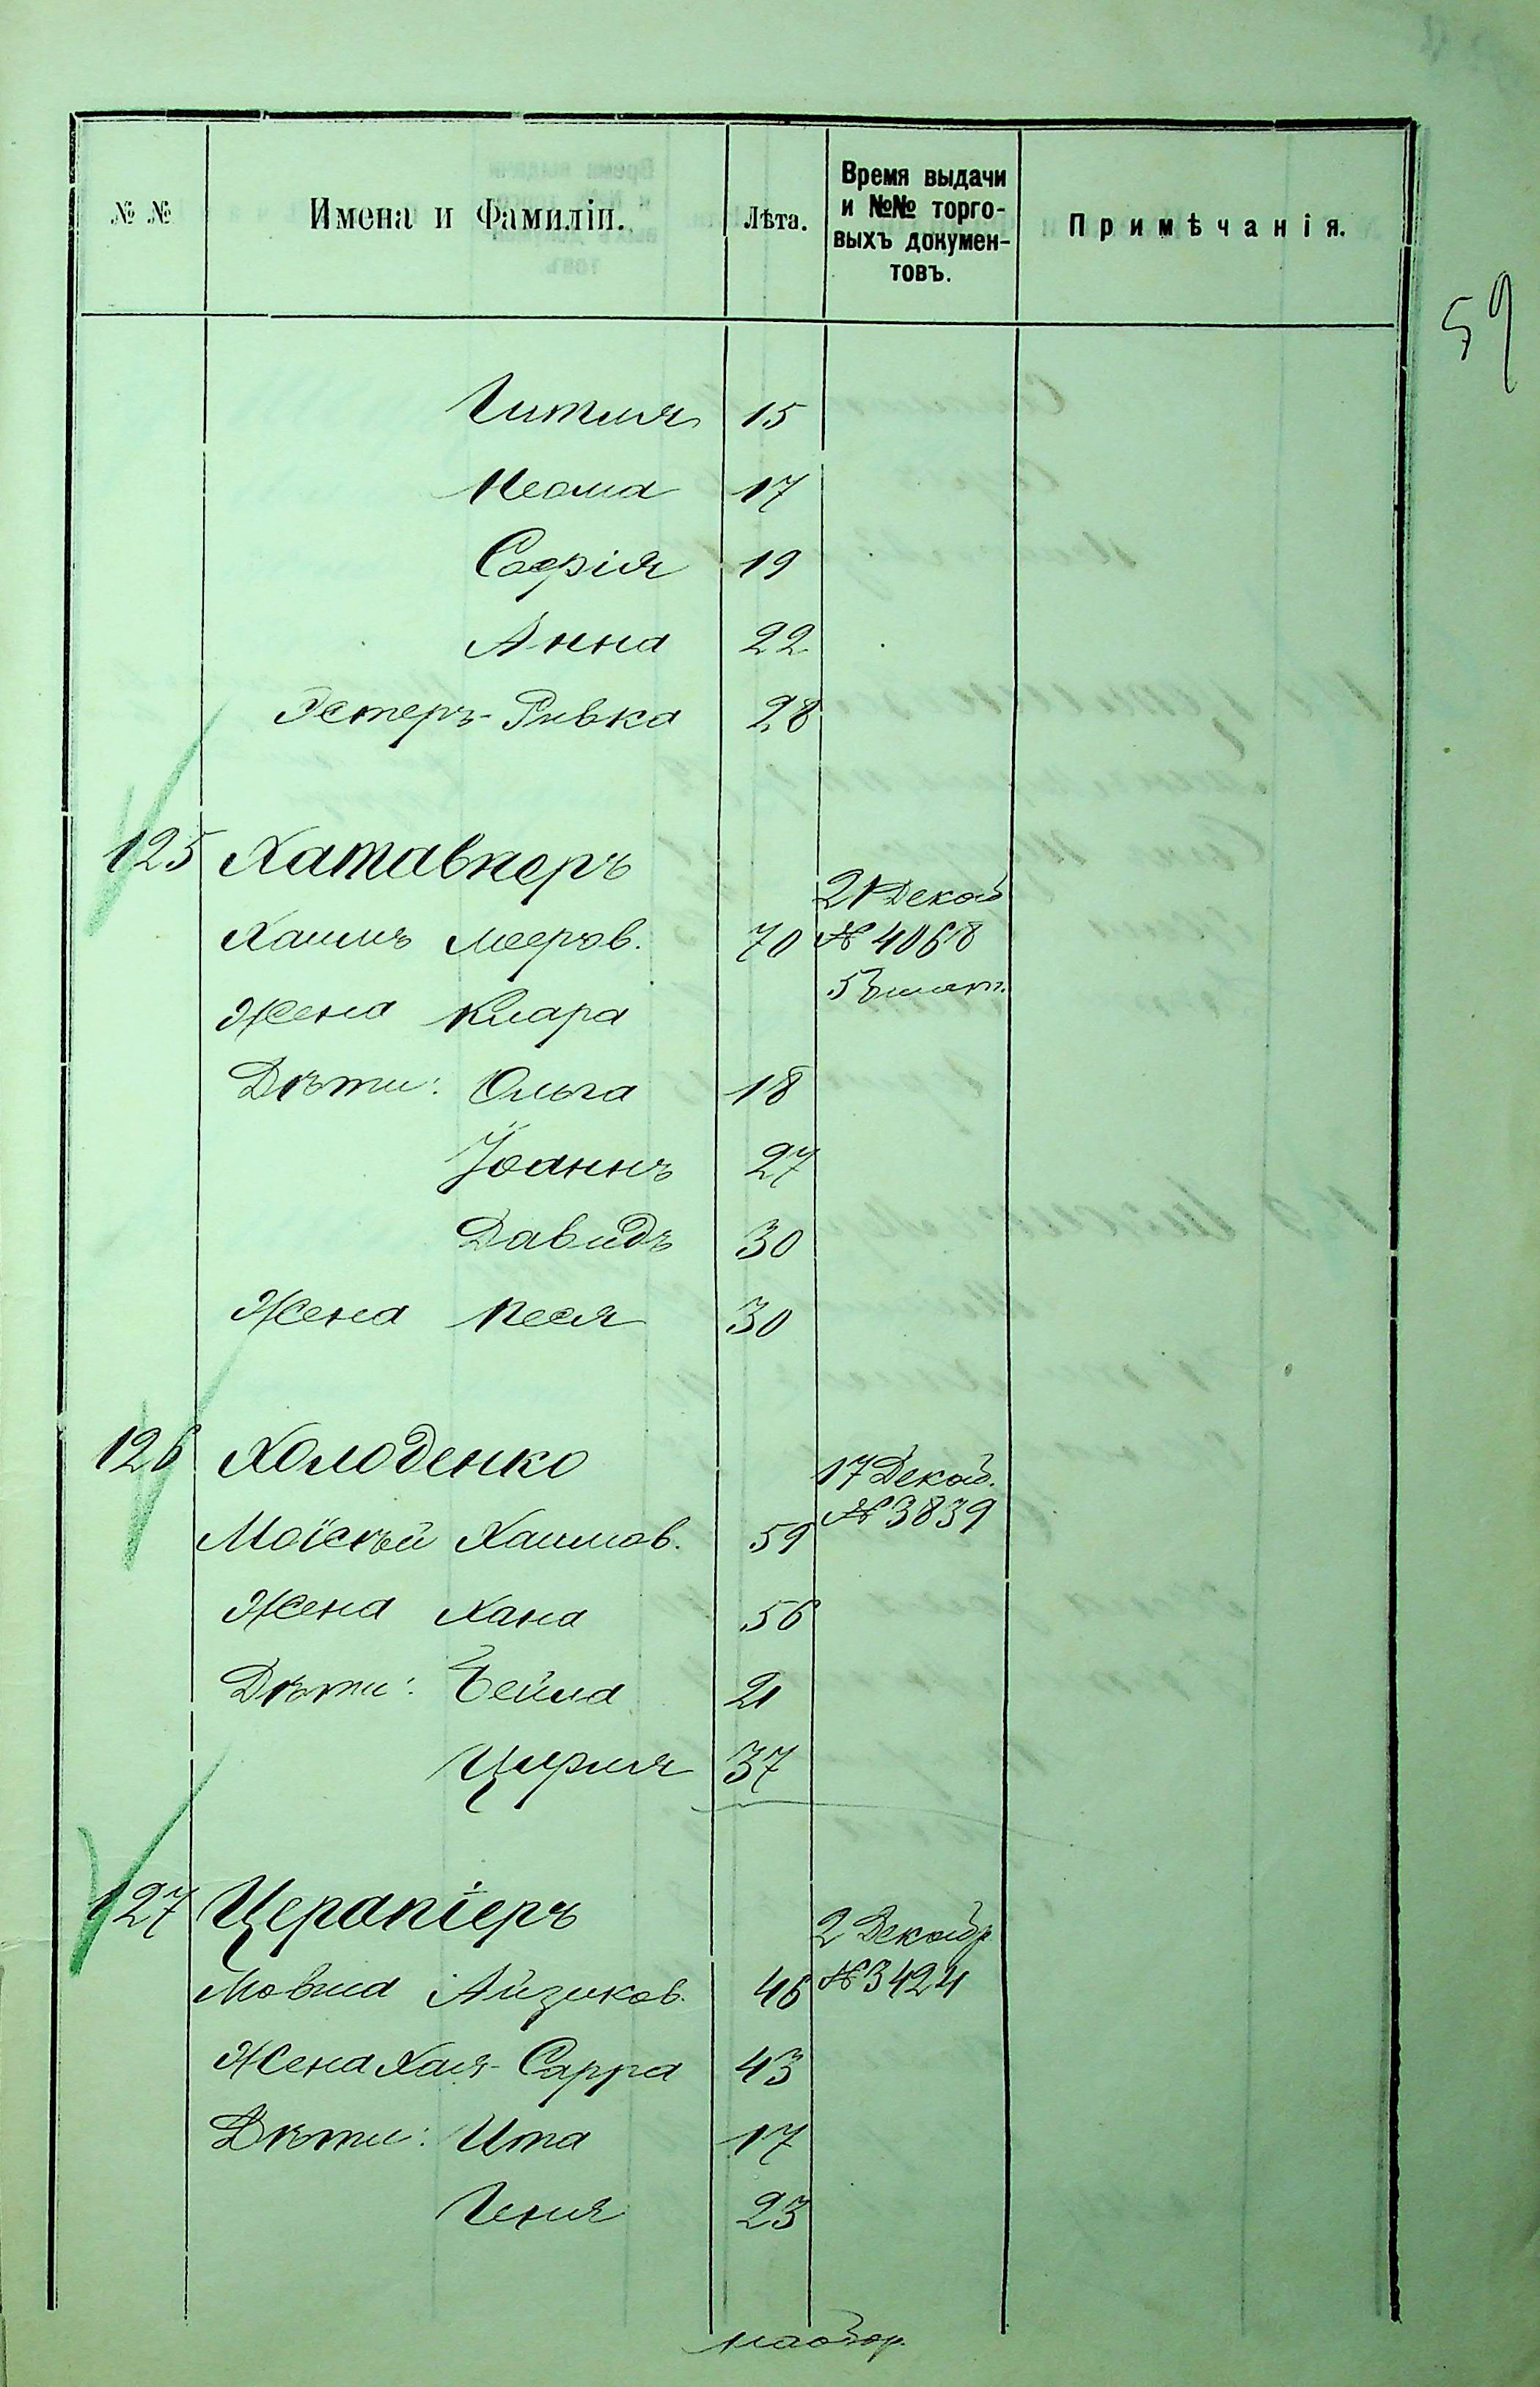 59
№ №
Имена и Фамиліи.
Лѣта.
Время выдачи
и №№ торго-
выхъ докумен-
товъ.
Примѣчанія.
Гитля 15
Неома 17
Софія 19
Анна 22
Эстеръ-Ривка 28
125 Хатавнеръ
21 Декаб
Хаимъ Мееров. 70 № 4068
Жена Клара
Дѣти: Ольга 18
Іоаннъ 27
Давидъ 30
Жена Песя 30
126 Холоденко 17 Декаб.
№ 3839
Моїсѣй Хаимов. 59
Жена Хана 56
Дѣти: Бейла 21
Цирля 37
127 Церапіеръ 2 Декабр
Мовша Айзиков. 46 № 3424
Жена Хая-Сарра 43
Дѣти: Ита 17
Геня 23